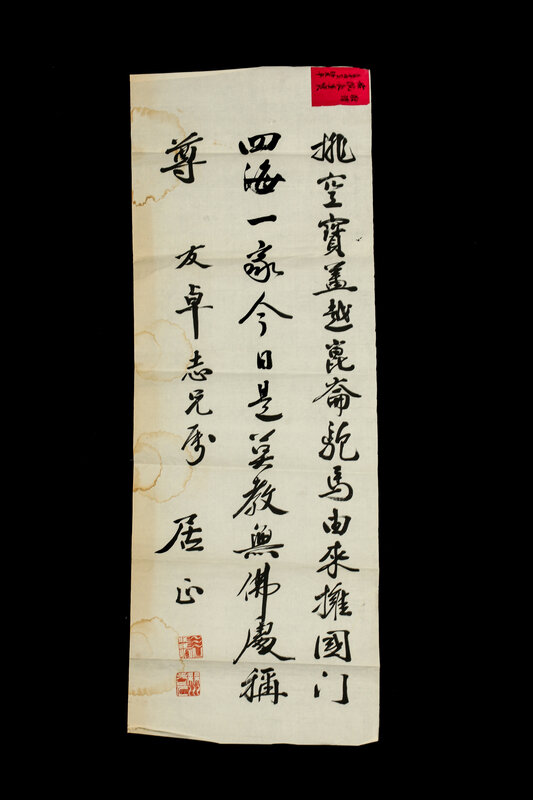 排空寶蓋越崑崙駝馬由來擁國门
四海一家今日是莫教無佛處稱
尊
友卓志兄属
居正